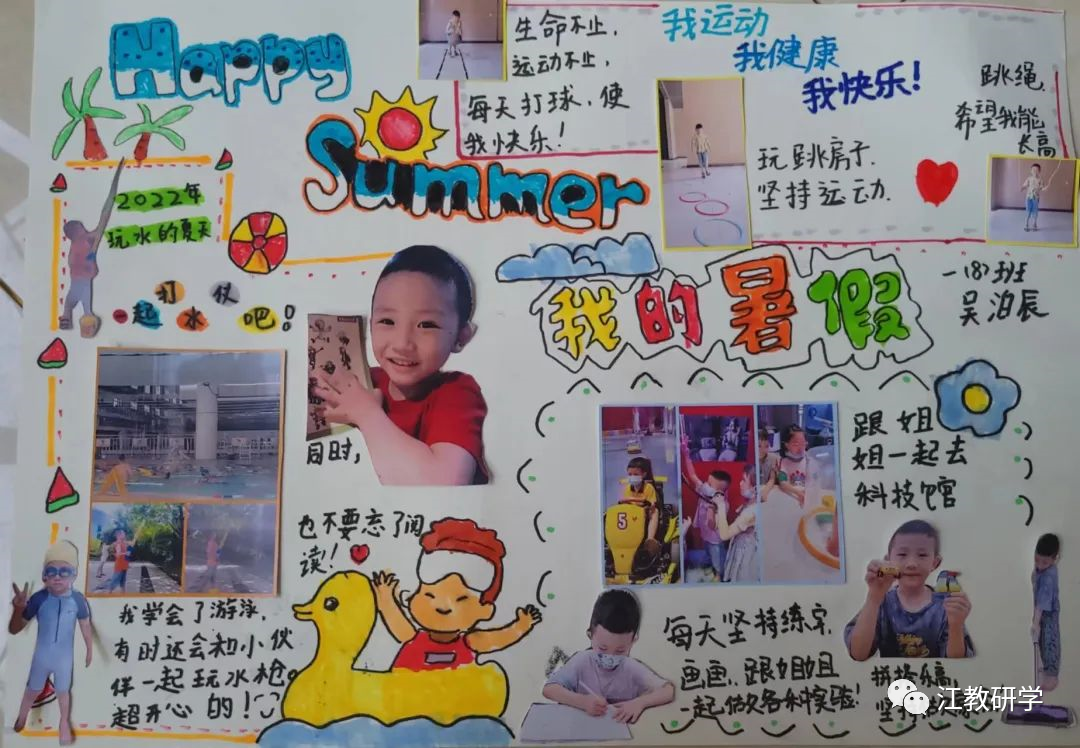 Happy
Summer
生命不止,
运动不止,
每天打球,使
我快乐!
我运动
我健康
我快乐!
玩跳房子.
坚持运动.
跳绳,
希望我能
长高
2022年
玩水的夏天
一起打水仗吧!
我的暑假
一(8)班
吴泊辰
同时,
也不要忘了阅
读!
5
跟姐
姐一起去
科技馆
我学会了游泳,
有时还会和小伙
伴一起玩水枪。
超开心的!
每天坚持练字,
画画,跟姐姐
一起做各种实验!
拼搭乐高,
坚持
江教研学